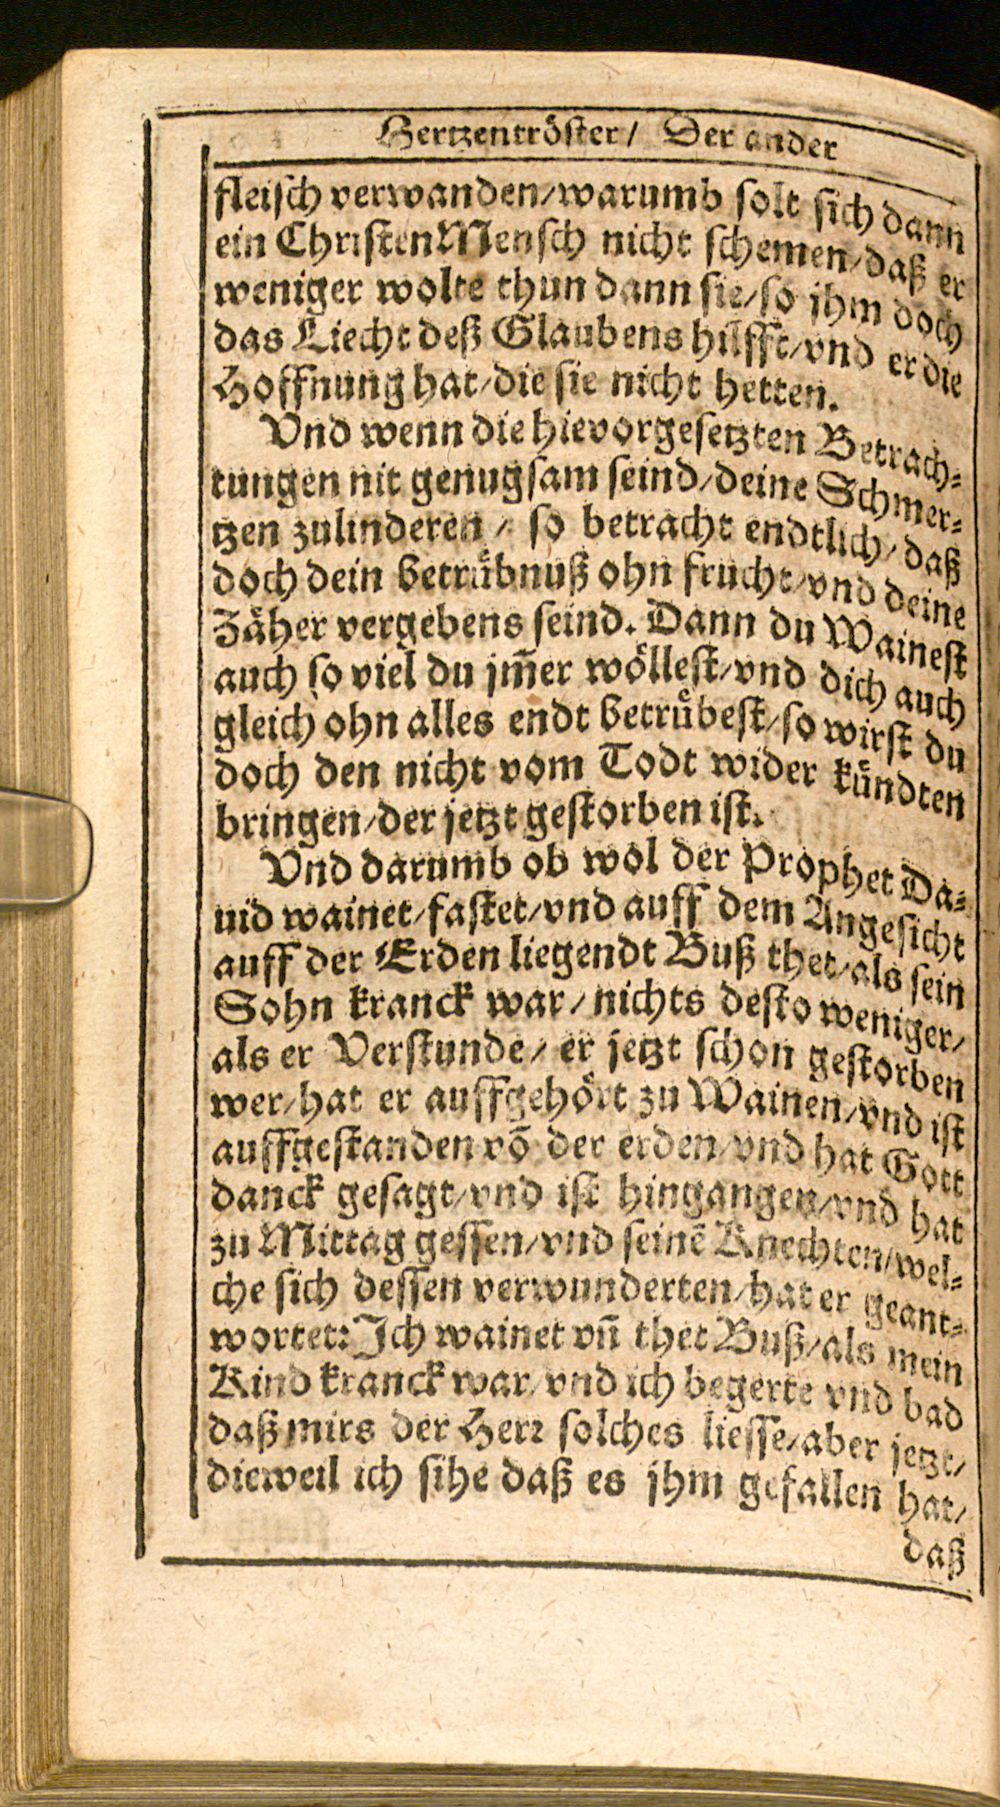 Hertzentröster/ Der ander
fleisch verwanden/warumb solt sich dann
ein ChristenMensch nicht schemen/daß er
weniger wolte thun dann sie/so jhm doch
das Liecht deß Glaubens hilfft/vnd er die
Hoffnung hat/die sie nicht hetten.
Vnd wenn die hievorgesetzten Betrach⸗
tungen nit genugsam seind/deine Schmer⸗
tzen zulinderen/ so betracht endtlich/daß
doch dein betruͤbnuß ohn frucht/vnd deine
Zaͤher vergebens seind. Dann du Wainest
auch so viel du jm̃er woͤllest/vnd dich auch
gleich ohn alles endt betruͤbest/so wirst du
doch den nicht vom Todt wider kuͤndten
bringen/der jetzt gestorben ist.
Vnd darumb ob wol der Prophet Da⸗
uid wainet/fastet/vnd auff dem Angesicht
auff der Erden liegendt Buß thet/als sein
Sohn kranck war/nichts desto weniger/
als er Verstunde/ er jetzt schon gestorben
wer/hat er auffgehoͤrt zu Wainen/vnd ist
auffgestanden võ der erden/vnd hat Gott
danck gesagt/vnd ist hingangen/vnd hat
zu Mittag gessen/vnd seinẽ Knechten/wel⸗
che sich dessen verwunderten/hat er geant⸗
wortet: Ich wainet vñ thet Buß/als mein
Kind kranck war/vnd ich begerte vnd bad
daß mirs der Herr solches liesse/aber jetzt/
dieweil ich sihe daß es jhm gefallen hat/
daß